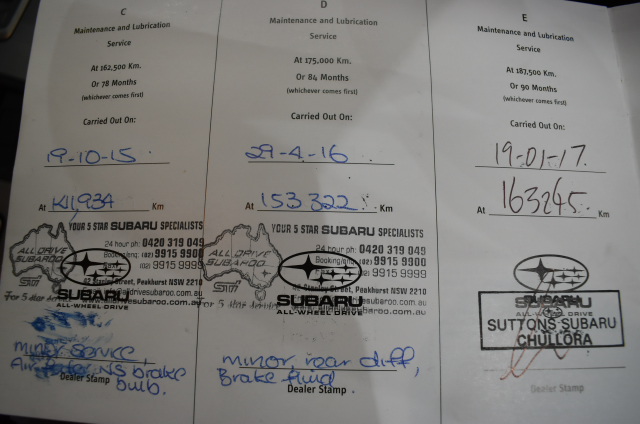 C
Maintenance and Lubrication
Service
At 162,500 Km.
Or 78 Months
(whichever comes first)
Carried Out On:
19-10-15
At Km
YOUR 5 STAR SUBARU SPECIALISTS
ALL DRIVE
SUBAROO
24 hour ph: 0420 319 049
(02) 9915 9900
(02) 9915 9999
Street, Peakhurst NSW 2210
SUBARU
ALL-WHEEL DRIVE
minor service,
Air NS brake
bulb.
Dealer Stamp
D
Maintenance and Lubrication
Service
At 175,000 Km.
Or 84 Months
(whichever comes first)
Carried Out On:
29-4-16
At 153322 Km
YOUR 5 STAR SUBARU SPECIALISTS
ALL DRIVE
SUBAROO
24 hour ph: 0420 319 049
Booking/enq: (02) 9915 9900
(02) 9915 9999
Street, Peakhurst NSW 2210
SUBARU
ALL-WHEEL DRIVE
minor, rear diff,
Brake fluid
Dealer Stamp
E
Maintenance and Lubrication
Service
At 187,500 Km.
Or 90 Months
(whichever comes first)
Carried Out On:
19-01-17.
At 163245 Km
SUBARU
SUTTONS SUBARU
CHULLORA
Dealer Stamp